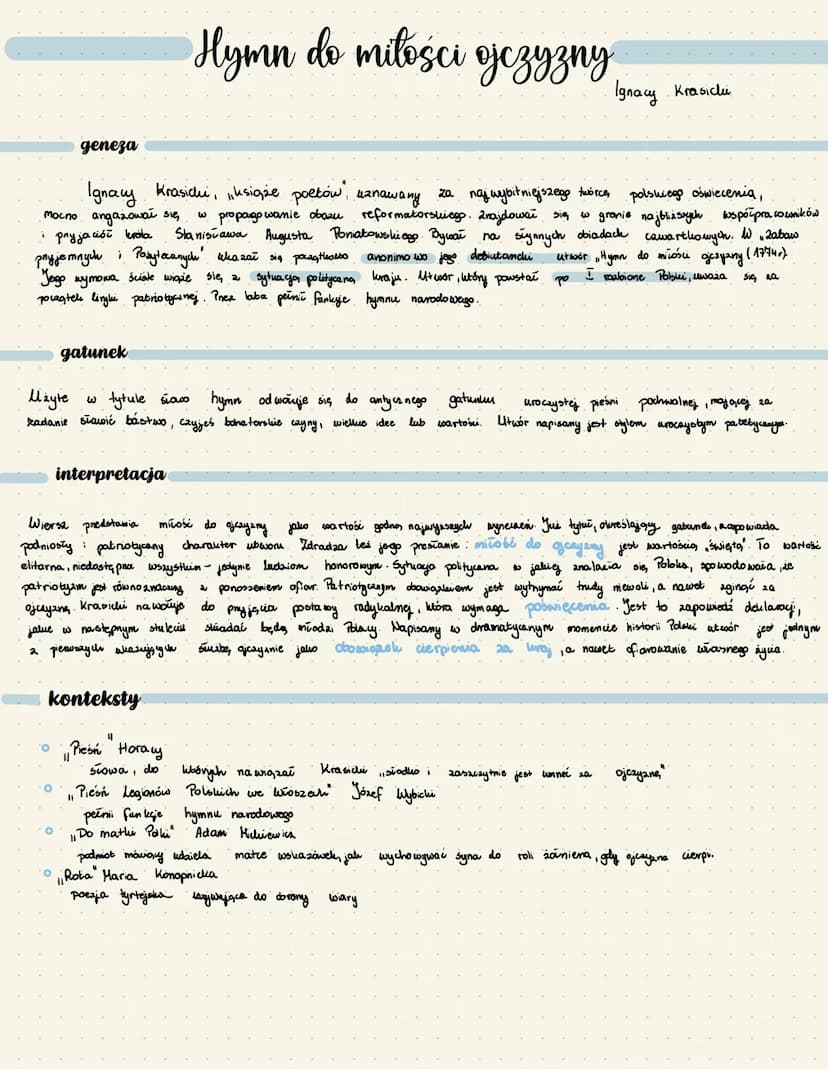 Hymn do miłości ojczyzny
Ignacy Krasicki
geneza
Ignacy Krasicki, „książe poetów", uznawany za najwybitniejszego twórcę polskiego oświecenia,
mocno angażował się w propagowanie obozu reformatorskiego. Znajdował się w gronie najbliższych współpracowników
i przyjaciół króla Stanisława Augusta Poniatowskiego. Bywał na słynnych obiadach czwartkowych. W „Zabaw
przyjemnych i Pożytecznych" ukazał się początkowo anonimowo jego debiutancki utwór „Hymn do miłości ojczyzny (1774r.)
Jego wymowa ściśle wiąże się z sytuacją polityczną kraju. Utwór, który powstał po I rozbiorze Polski, uważa się za
początek liryki patriotycznej. Przez lata pełnił funkcje hymnu narodowego.
gatunek
Użyte w tytule słowo hymn odwołuje się do antycznego gatunku uroczystej pieśni pochwalnej, mającej za
zadanie sławić bóstwo, czyjeś bohaterskie czyny, wielkie idee lub wartości. Utwór napisany jest stylem uroczystym patetycznym.
interpretacja
Wiersz przedstawia miłość do ojczyzny jako wartość godną najwyższych wyrzeczeń. Już tytuł, określający gatunek, zapowiada
podniosły i patriotyczny charakter utworu. Zdradza też jego przesłanie: miłość do ojczyzny jest wartością „świętą". To wartość
elitarna, niedostępna wszystkim - jedynie ludziom honorowym. Sytuacja polityczna w jakiej znalazła się Polska, spowodowała, że
patriotyzm jest równoznaczny z ponoszeniem ofiar. Patriotycznym obowiązkiem jest wytrzymać trudy niewoli, a nawet zginąć za
ojczyznę. Krasicki nawołuje do przyjęcia postawy radykalnej, która wymaga poświęcenia. Jest to zapowiedź deklaracji,
jakie w następnym stuleciu składać będą młodzi Polacy. Napisany w dramatycznym momencie historii Polski utwór jest jednym
z pierwszych ukazujących służbę ojczyźnie jako obowiązek cierpienia za kraj, a nawet ofiarowanie własnego życia.
konteksty
„Pieśń" Horacy
słowa, do których nawiązał Krasicki „słodko i zaszczytnie jest umrzeć za ojczyznę"
„Pieśń Legionów Polskich we Włoszech" Józef Wybicki
pełnił funkcje hymnu narodowego
„Do matki Polki" Adam Mickiewicz
podmiot mówiący udziela matce wskazówek, jak wychowywać syna do roli żołnierza, gdy ojczyzna cierpi.
„Rota" Maria Konopnicka
poezja tyrtejska wzywająca do obrony wiary